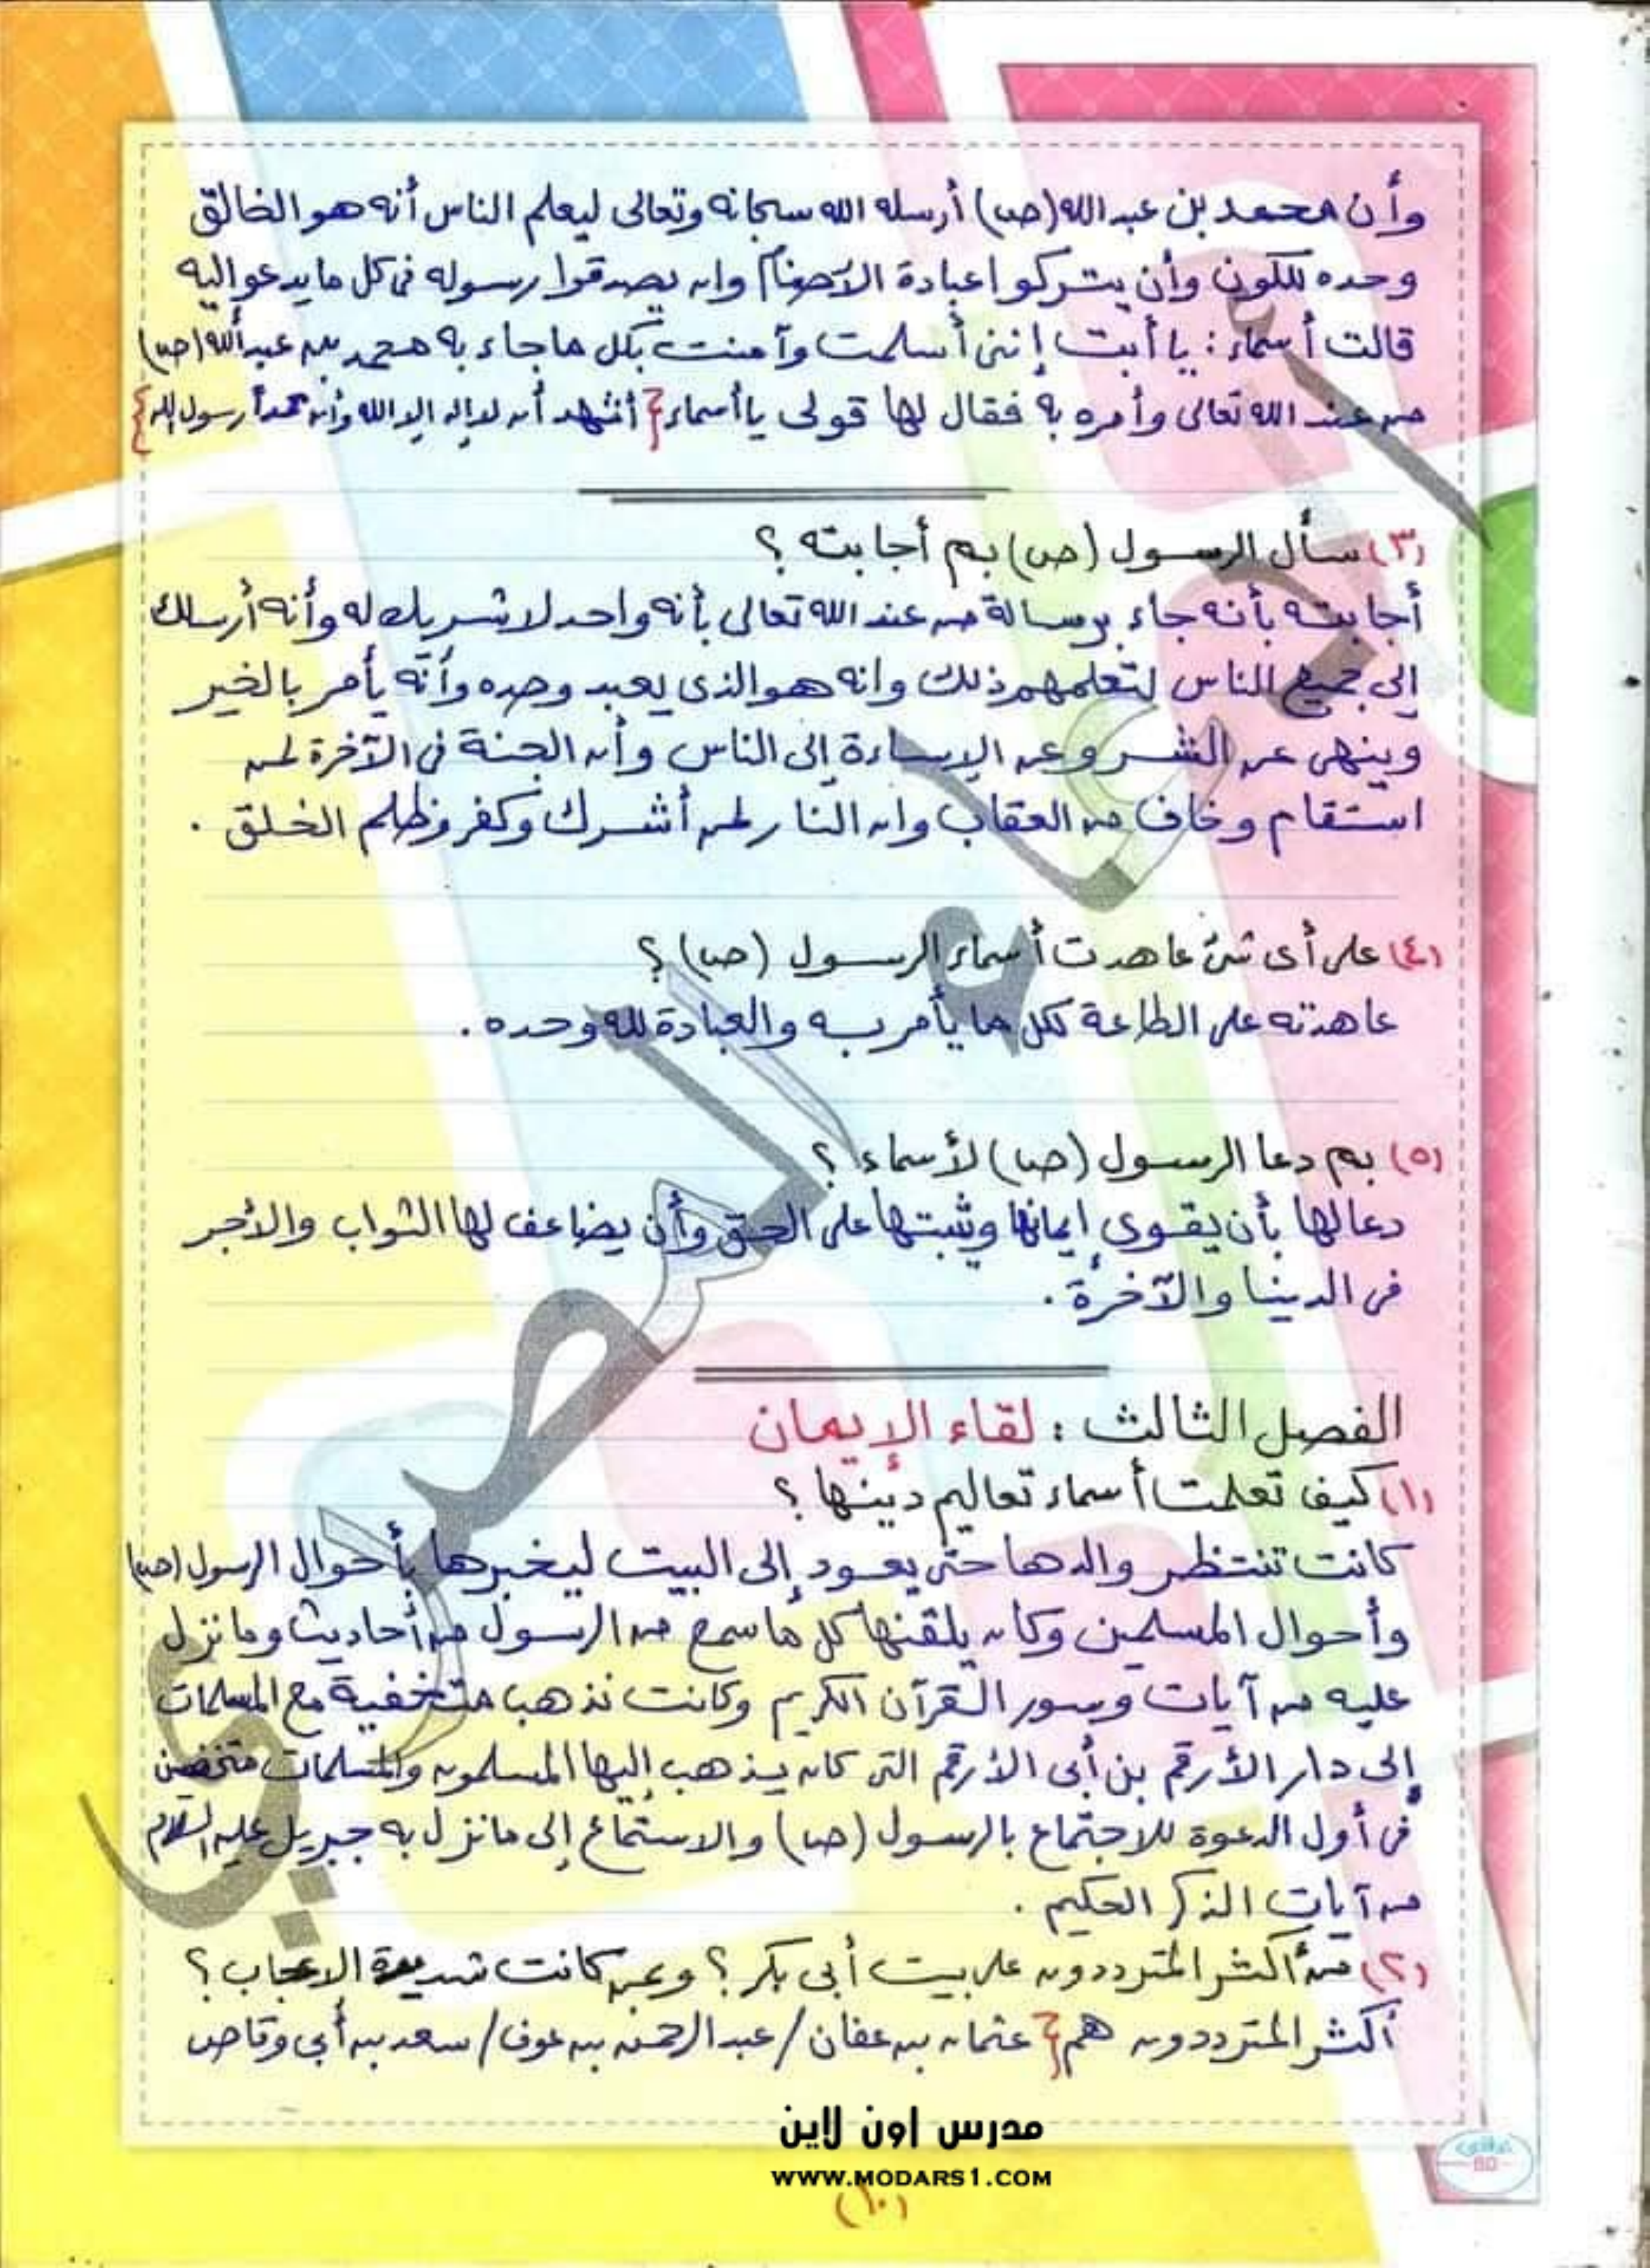 وأن محمد بن عبد الله (صـ) أرسله الله سبحانه وتعالى ليعلم الناس أنه هو الخالق
وحده للكون وأن يتركوا عبادة الأصنام وان يصدقوا رسوله فى كل ما يدعو اليه
قالت أسماء : يا أبت إننى أسلمت وآمنت بكل ما جاء به محمد بن عبد الله (صـ)
من عند الله تعالى وأمره به فقال لها قولى يا أسماء { أشهد أن لا إله إلا الله وأن محمداً رسول الله }
(٣) سأل الرسول (صـ) بم أجابته ؟
أجابته بأنه جاء برسالة من عند الله تعالى بأنه واحد لا شريك له وأنه أرسلك
إلى جميع الناس لتعلمهم ذلك وانه هو الذى يعبد وحده وأنه يأمر بالخير
وينهى عن الشر وعن الإساءة إلى الناس وأن الجنة فى الآخرة لمن
استقام وخاف من العقاب وان النار لمن أشرك وكفر وظلم الخلق .
(٤) على أى شئ عاهدت أسماء الرسول (صـ) ؟
عاهدته على الطاعة لكل ما يأمر به والعبادة لله وحده .
(٥) بم دعا الرسول (صـ) لأسماء ؟
دعا لها بأن يقوى إيمانها ويثبتها على الحق وأن يضاعف لها الثواب والأجر
فى الدينا والآخرة .
الفصل الثالث : لقاء الإيمان
(١) كيف تعلمت أسماء تعاليم دينها ؟
كانت تنتظر والدها حتى يعود إلى البيت ليخبرها بأحوال الرسول (صـ)
وأحوال المسلمين وكان يلقنها كل ما سمع من الرسول من أحاديث وما نزل
عليه من آيات وسور القرآن الكريم وكانت تذهب متخفية مع المسلمات
إلى دار الأرقم بن أبى الأرقم التى كان يذهب إليها المسلمون والمسلمات متخفين
فى أول الدعوة للاجتماع بالرسول (صـ) والاستماع إلى ما نزل به جبريل عليه السلام
من آيات الذكر الحكيم .
(٢) من أكثر المترددون على بيت أبى بكر ؟ وبمن كانت شديدة الإعجاب ؟
أكثر المترددون هم { عثمان بن عفان / عبد الرحمن بن عوف / سعد بن أبى وقاص
مدرس اون لاين
WWW.MODARS1.COM
(١٠)